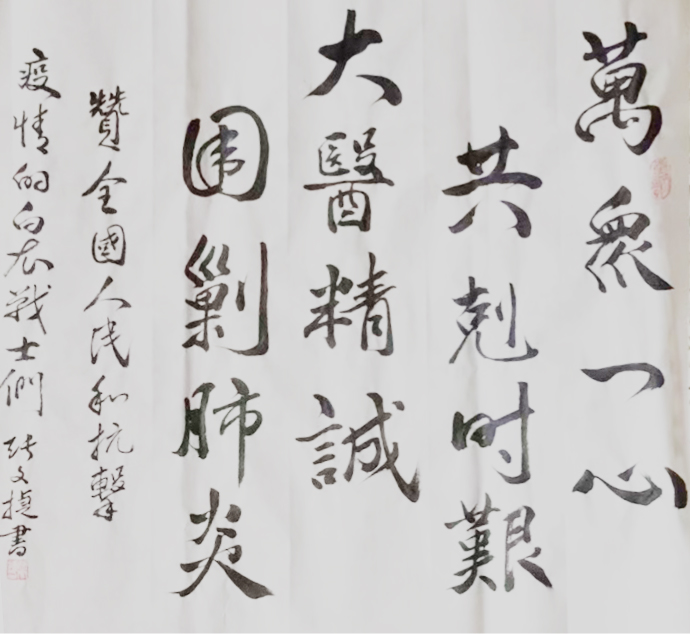 萬眾一心
共剋时艱
大醫精誠
围剿肺炎
贊全國人民和抗擊
疫情的白衣戰士們 张文捷書